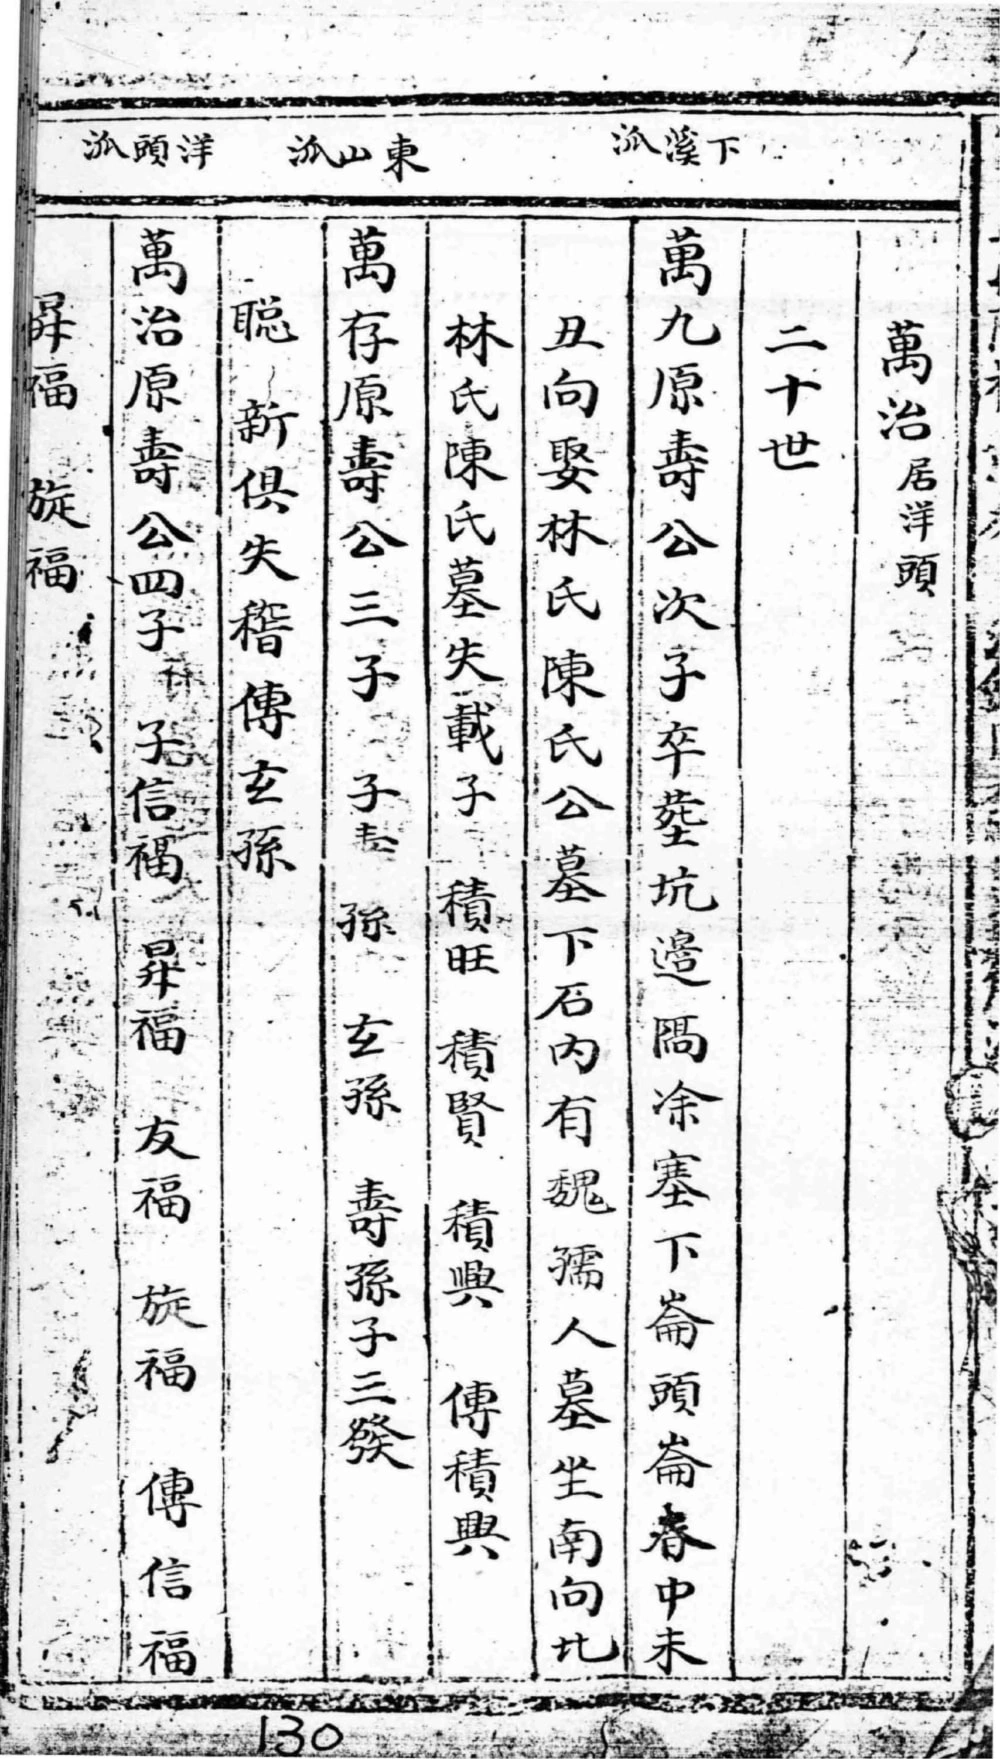 下溪派
東山派
洋頭派
萬治居洋頭
二十世
萬九原壽公次子卒塟坑邉隔凃塞下崙頭崙脊中未
丑向娶林氏陳氏公墓下石内有魏孺人墓坐南向北
林氏陳氏墓失載子 積旺 積賢 積興 傳積興
萬存原壽公三子 子 孫 玄孫 壽孫子三發
聡 新俱失稽傳玄孫
萬治原壽公四子 子信福 昇福 友福 旋福 傳信福
昇福 旋福
130